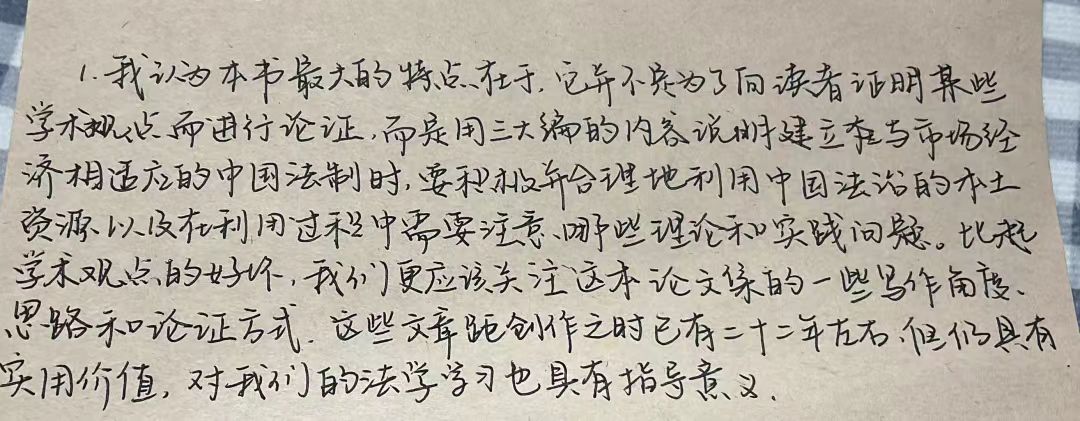 1. 我认为本书最大的特点在于,它并不是为了向读者证明某些
学术观点而进行论证,而是用三大编的内容说明建立在与市场经
济相适应的中国法制时,要积极并合理地利用中国法治的本土
资源以及在利用过程中需要注意哪些理论和实践问题。比起
学术观点的好坏,我们更应该关注这本论文集的一些写作角度、
思路和论证方式.这些文章距创作之时已有二十二年左右,但仍具有
实用价值,对我们的法学学习也具有指导意义.